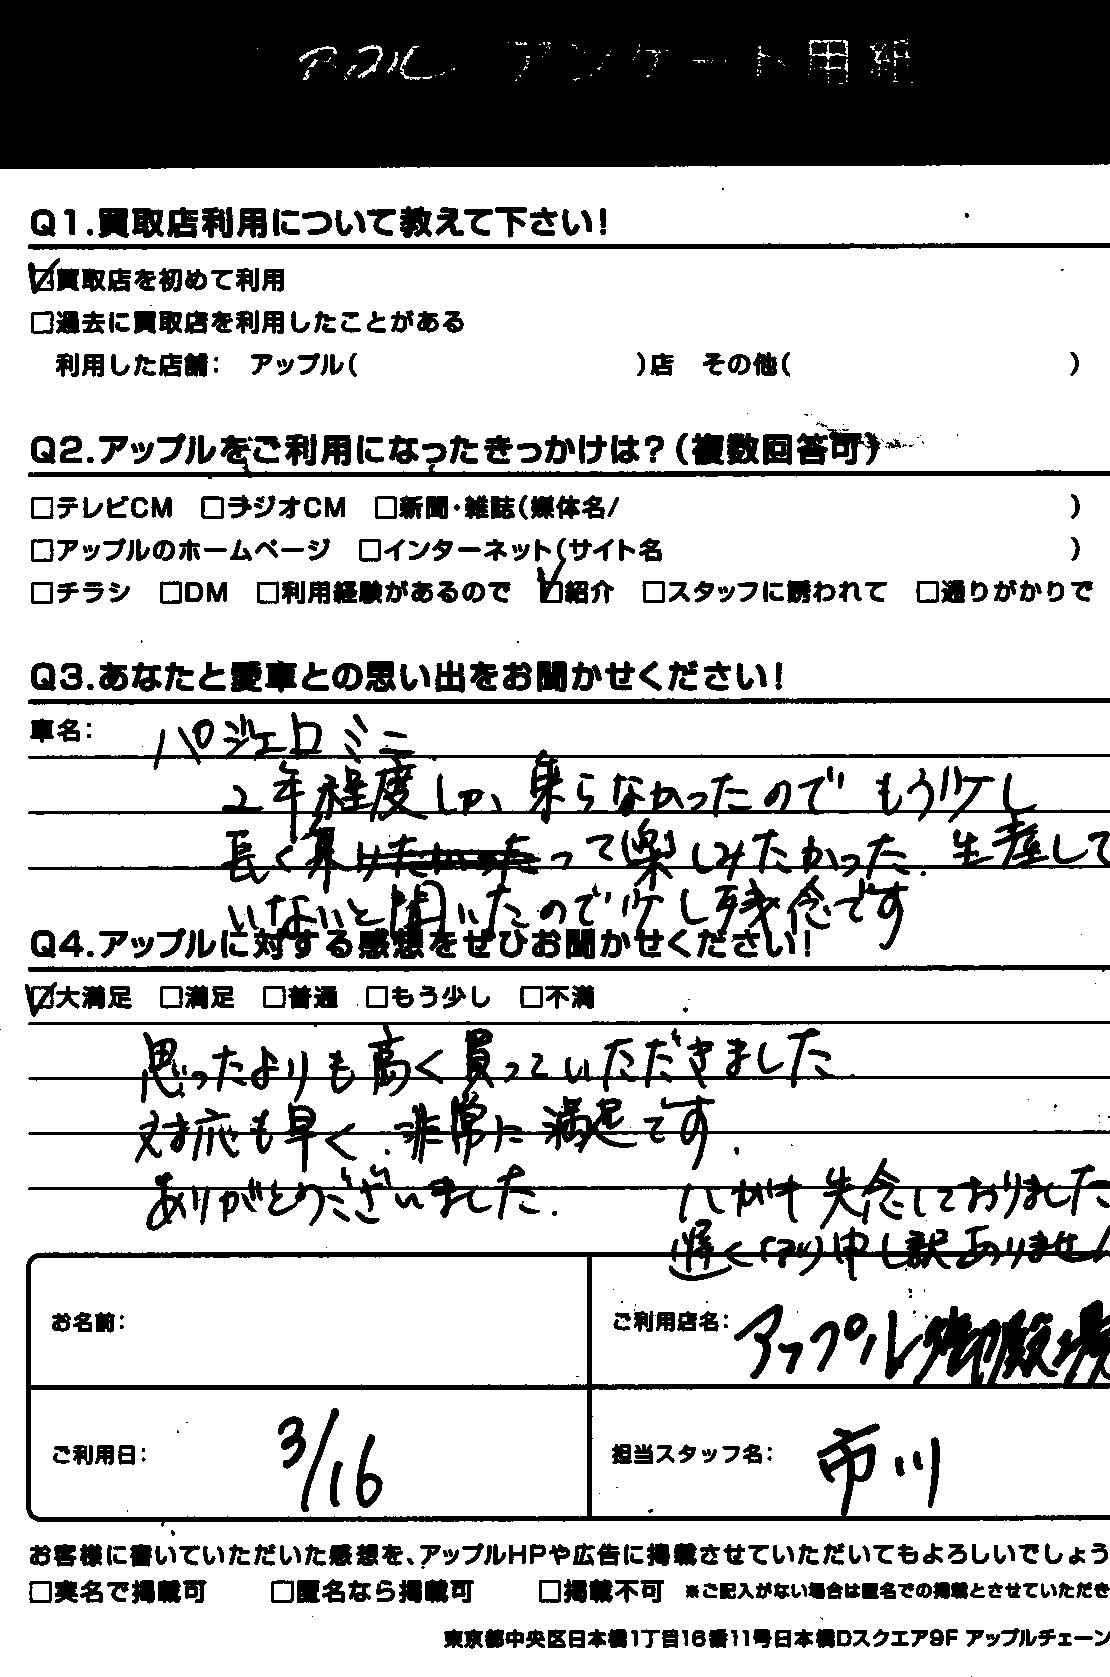 アップル アンケート用紙
Q1.買取店利用について教えて下さい!
☑買取店を初めて利用
□過去に買取店を利用したことがある
利用した店舗: アップル( )店 その他( )
Q2.アップルをご利用になったきっかけは?(複数回答可)
□テレビCM □ラジオCM □新聞・雑誌(媒体名/ )
□アップルのホームページ □インターネット(サイト名 )
□チラシ □DM □利用経験があるので ☑紹介 □スタッフに誘われて □通りがかりで
Q3.あなたと愛車との思い出をお聞かせください!
車名: パジェロミニ
2年程度しか、乗らなかったので もう少し
長く乗けたかったって楽しみたかった. 生産して
いないと聞いたので少し残念です
Q4.アップルに対する感想をぜひお聞かせください!
☑大満足 □満足 □普通 □もう少し □不満
思ったよりも高く買っていただきました.
対応も早く、非常に満足です.
ありがとうございました. ハガキ失念しておりました
遅くなり申し訳ありません
お名前:
ご利用店名: アップル御殿場
ご利用日: 3/16
担当スタッフ名: 市川
お客様に書いていただいた感想を、アップルHPや広告に掲載させていただいてもよろしいでしょう
□実名で掲載可 □匿名なら掲載可 □掲載不可 ※ご記入がない場合は匿名での掲載とさせていただき
東京都中央区日本橋1丁目16番11号日本橋Dスクエア9F アップルチェーン